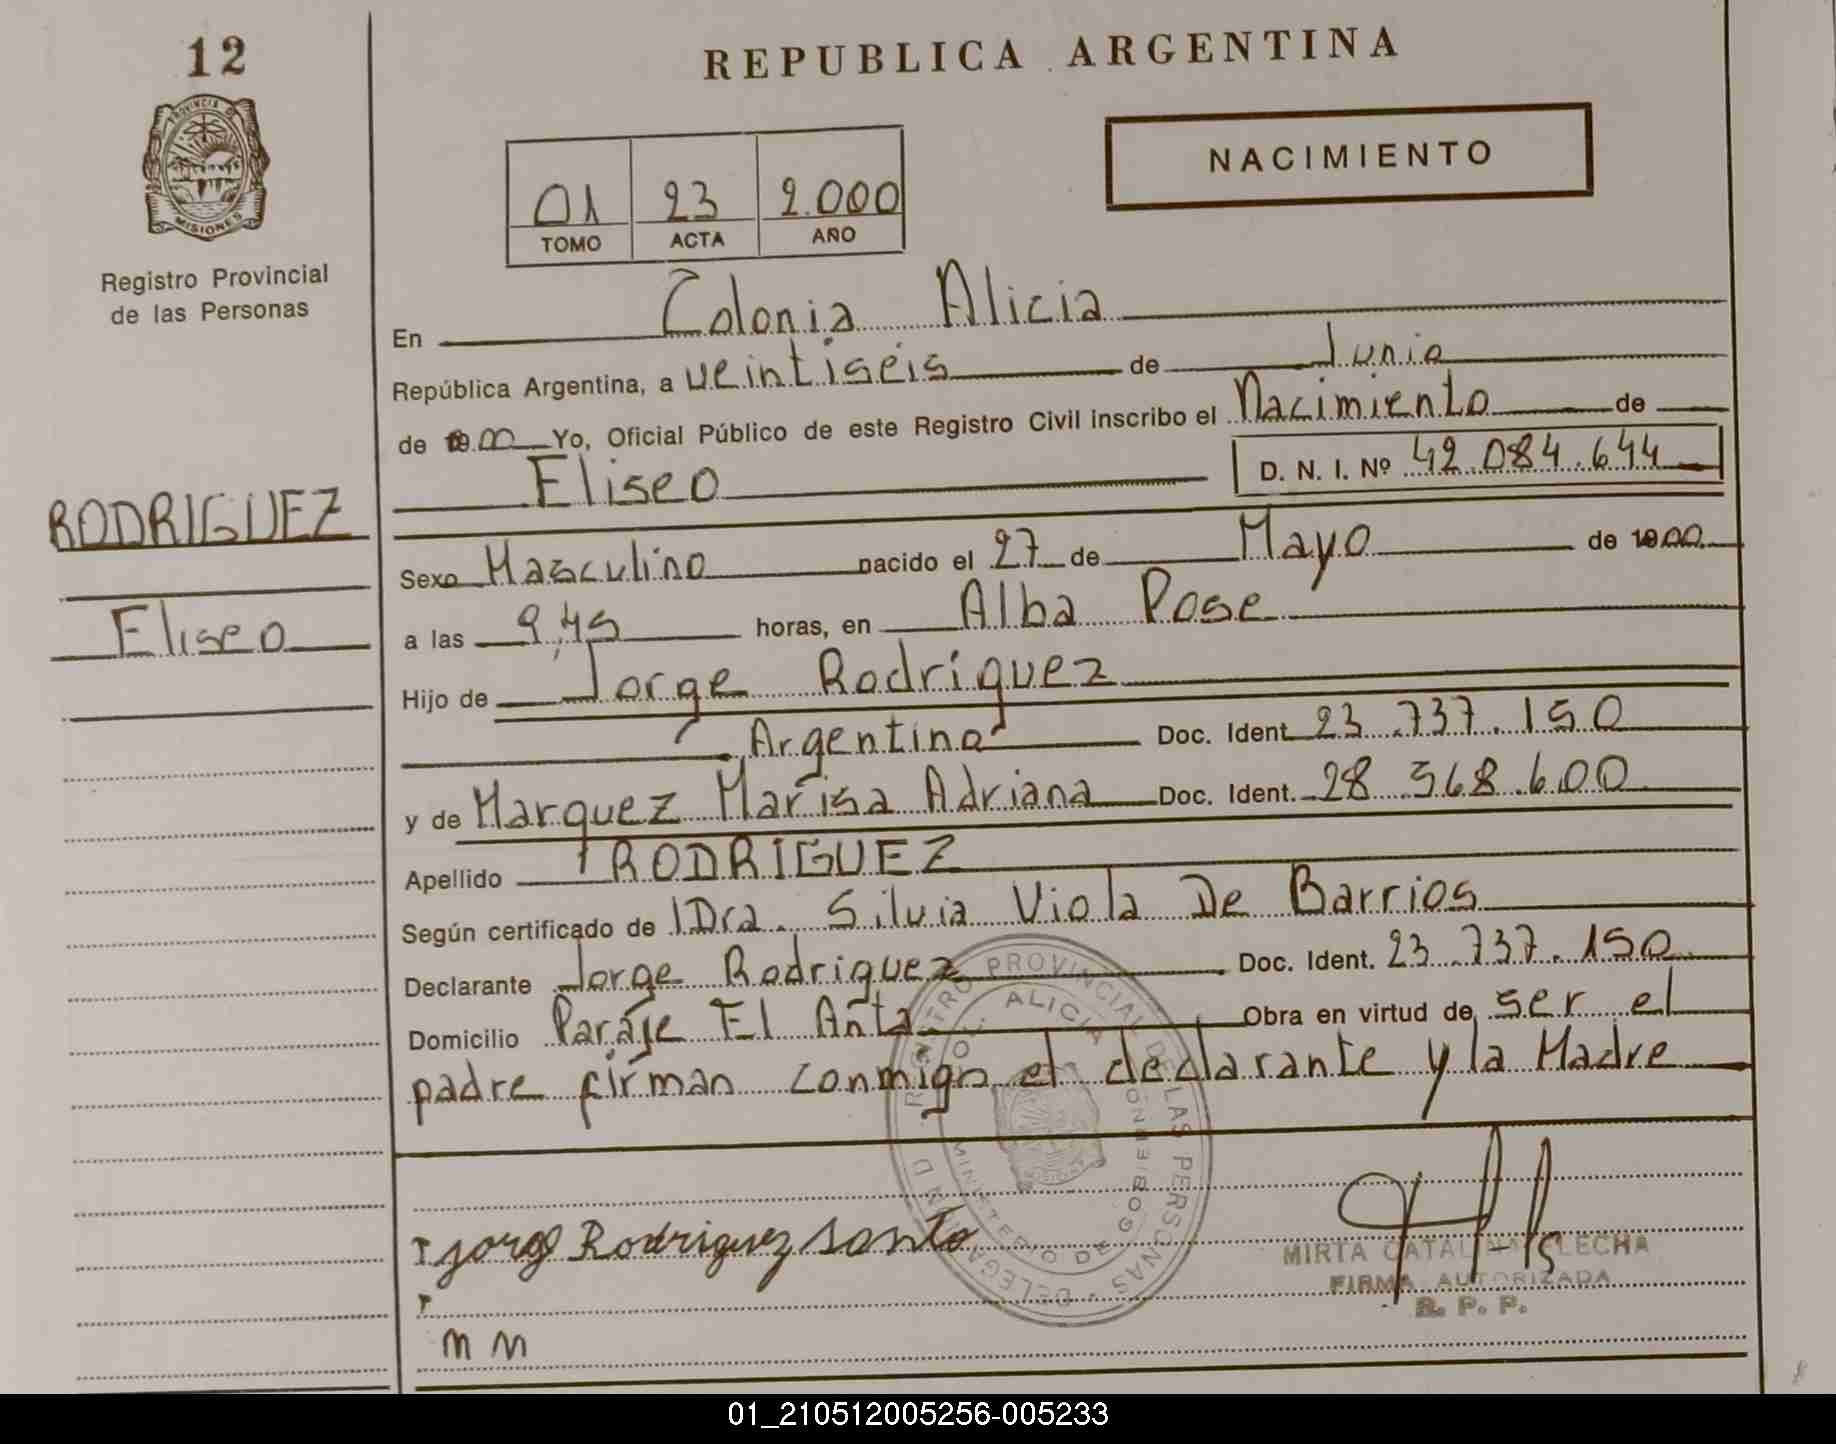 12
PROVINCIA D
MISIONES
Registro Provincial
de las Personas
RODRIGUEZ
Eliseo
REPUBLICA ARGENTINA
NACIMIENTO
01 23 2.000
TOMO ACTA AÑO
En Colonia Alicia
República Argentina, a veintiseis de Junio
de 00 Yo, Oficial Público de este Registro Civil inscribo el Nacimiento de
Eliseo D. N. I. Nº 42.084.644
Sexo Masculino nacido el 27 de Mayo de 00
a las 9,45 horas, en Alba Pose
Hijo de Jorge Rodriguez
Argentino Doc. Ident. 23.737.150
y de Marquez Marisa Adriana Doc. Ident. 28.368.600
Apellido RODRIGUEZ
Según certificado de Dra. Silvia Viola De Barrios
Declarante Jorge Rodriguez Doc. Ident. 23.737.150
Domicilio Paraje El Anta Obra en virtud de ser el
padre firman conmigo el declarante y la Madre
REGISTRO PROVINCIAL DE LAS PERSONAS
COL. ALICIA
MINISTERIO DE GOBIERNO
jorge Rodriguez santo
m m
MIRTA CATALINA FLECHA
FIRMA AUTORIZADA
R. P. P.
01_210512005256-005233